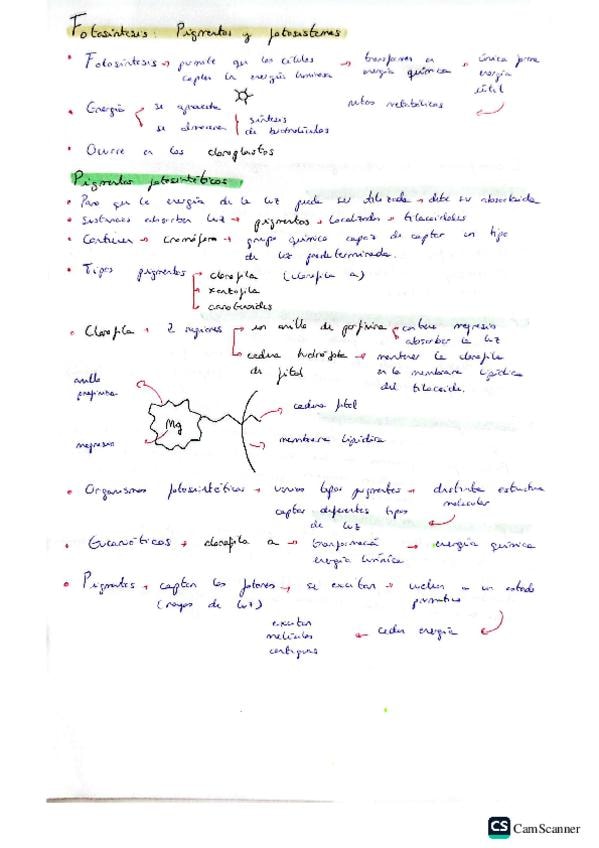 Fotosíntesis: Pigmentos y fotosistemas
• Fotosíntesis → permite que las células → transformen en → única forma
captar la energía luminosa energía química energía
útil
• Energía se aprovecha rutas metabólicas
se almacena síntesis
de biomoléculas
• Ocurre en los cloroplastos
Pigmentos fotosintéticos:
• Para que la energía de la luz pueda ser utilizada → debe ser absorbida
• Sustancias absorben luz → pigmentos → localizados → tilacoidales
• Contienen → cromóforo → grupo químico capaz de captar un tipo
de luz predeterminada.
• Tipos pigmentos clorofila (clorofila a)
xantofila
carotenoides
• Clorofila → 2 regiones → un anillo de porfirina → contiene magnesio
absorber la luz
cadena hidrófoba → mantener la clorofila
de fitol en la membrana lipídica
del tilacoide.
anillo
porfirina
Mg
cadena fitol
magnesio
membrana lipídica
• Organismos fotosintéticos → varios tipos pigmentos → distinta estructura
molecular
captar diferentes tipos
de luz
• Eucarióticos → clorofila a → energía química
energía lumínica
• Pigmentos → captan los fotones → se excitan → vuelven a un estado
(rayos de luz) primitivo
excitan
moléculas ← ceden energía
contiguas
CS CamScanner